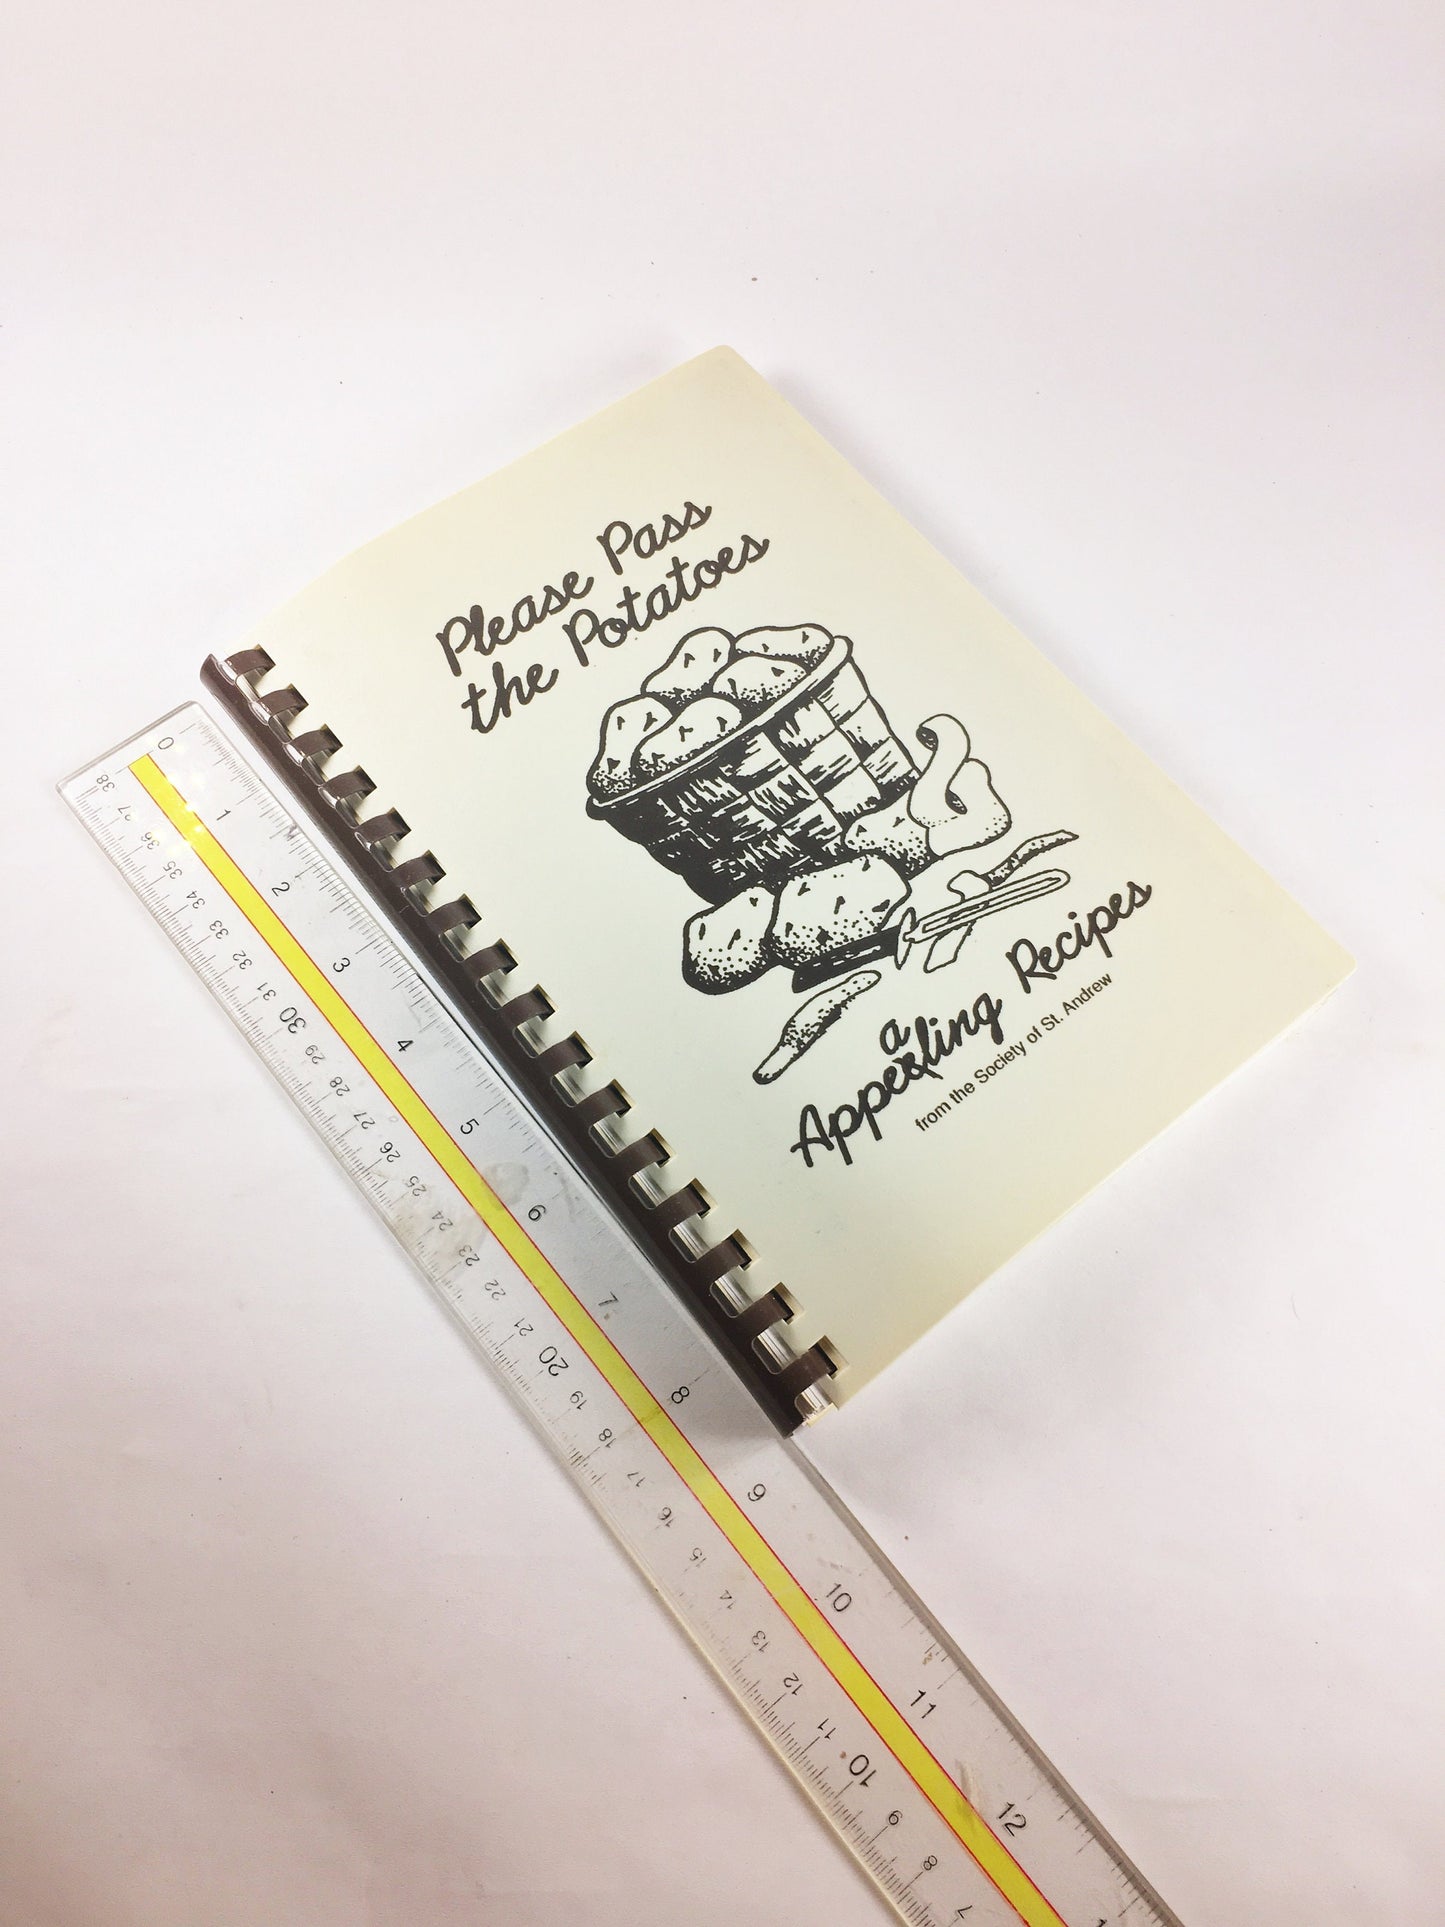 Please Pass
the Potatoes
a
Appeeling Recipes
from the Society of St. Andrew
0
1
2
3
4
5
6
7
8
9
10
11
12
38
37
36
35
34
33
32
31
30
29
28
27
26
25
24
23
22
21
20
19
18
17
16
15
14
13
12
11
10
9
8
7